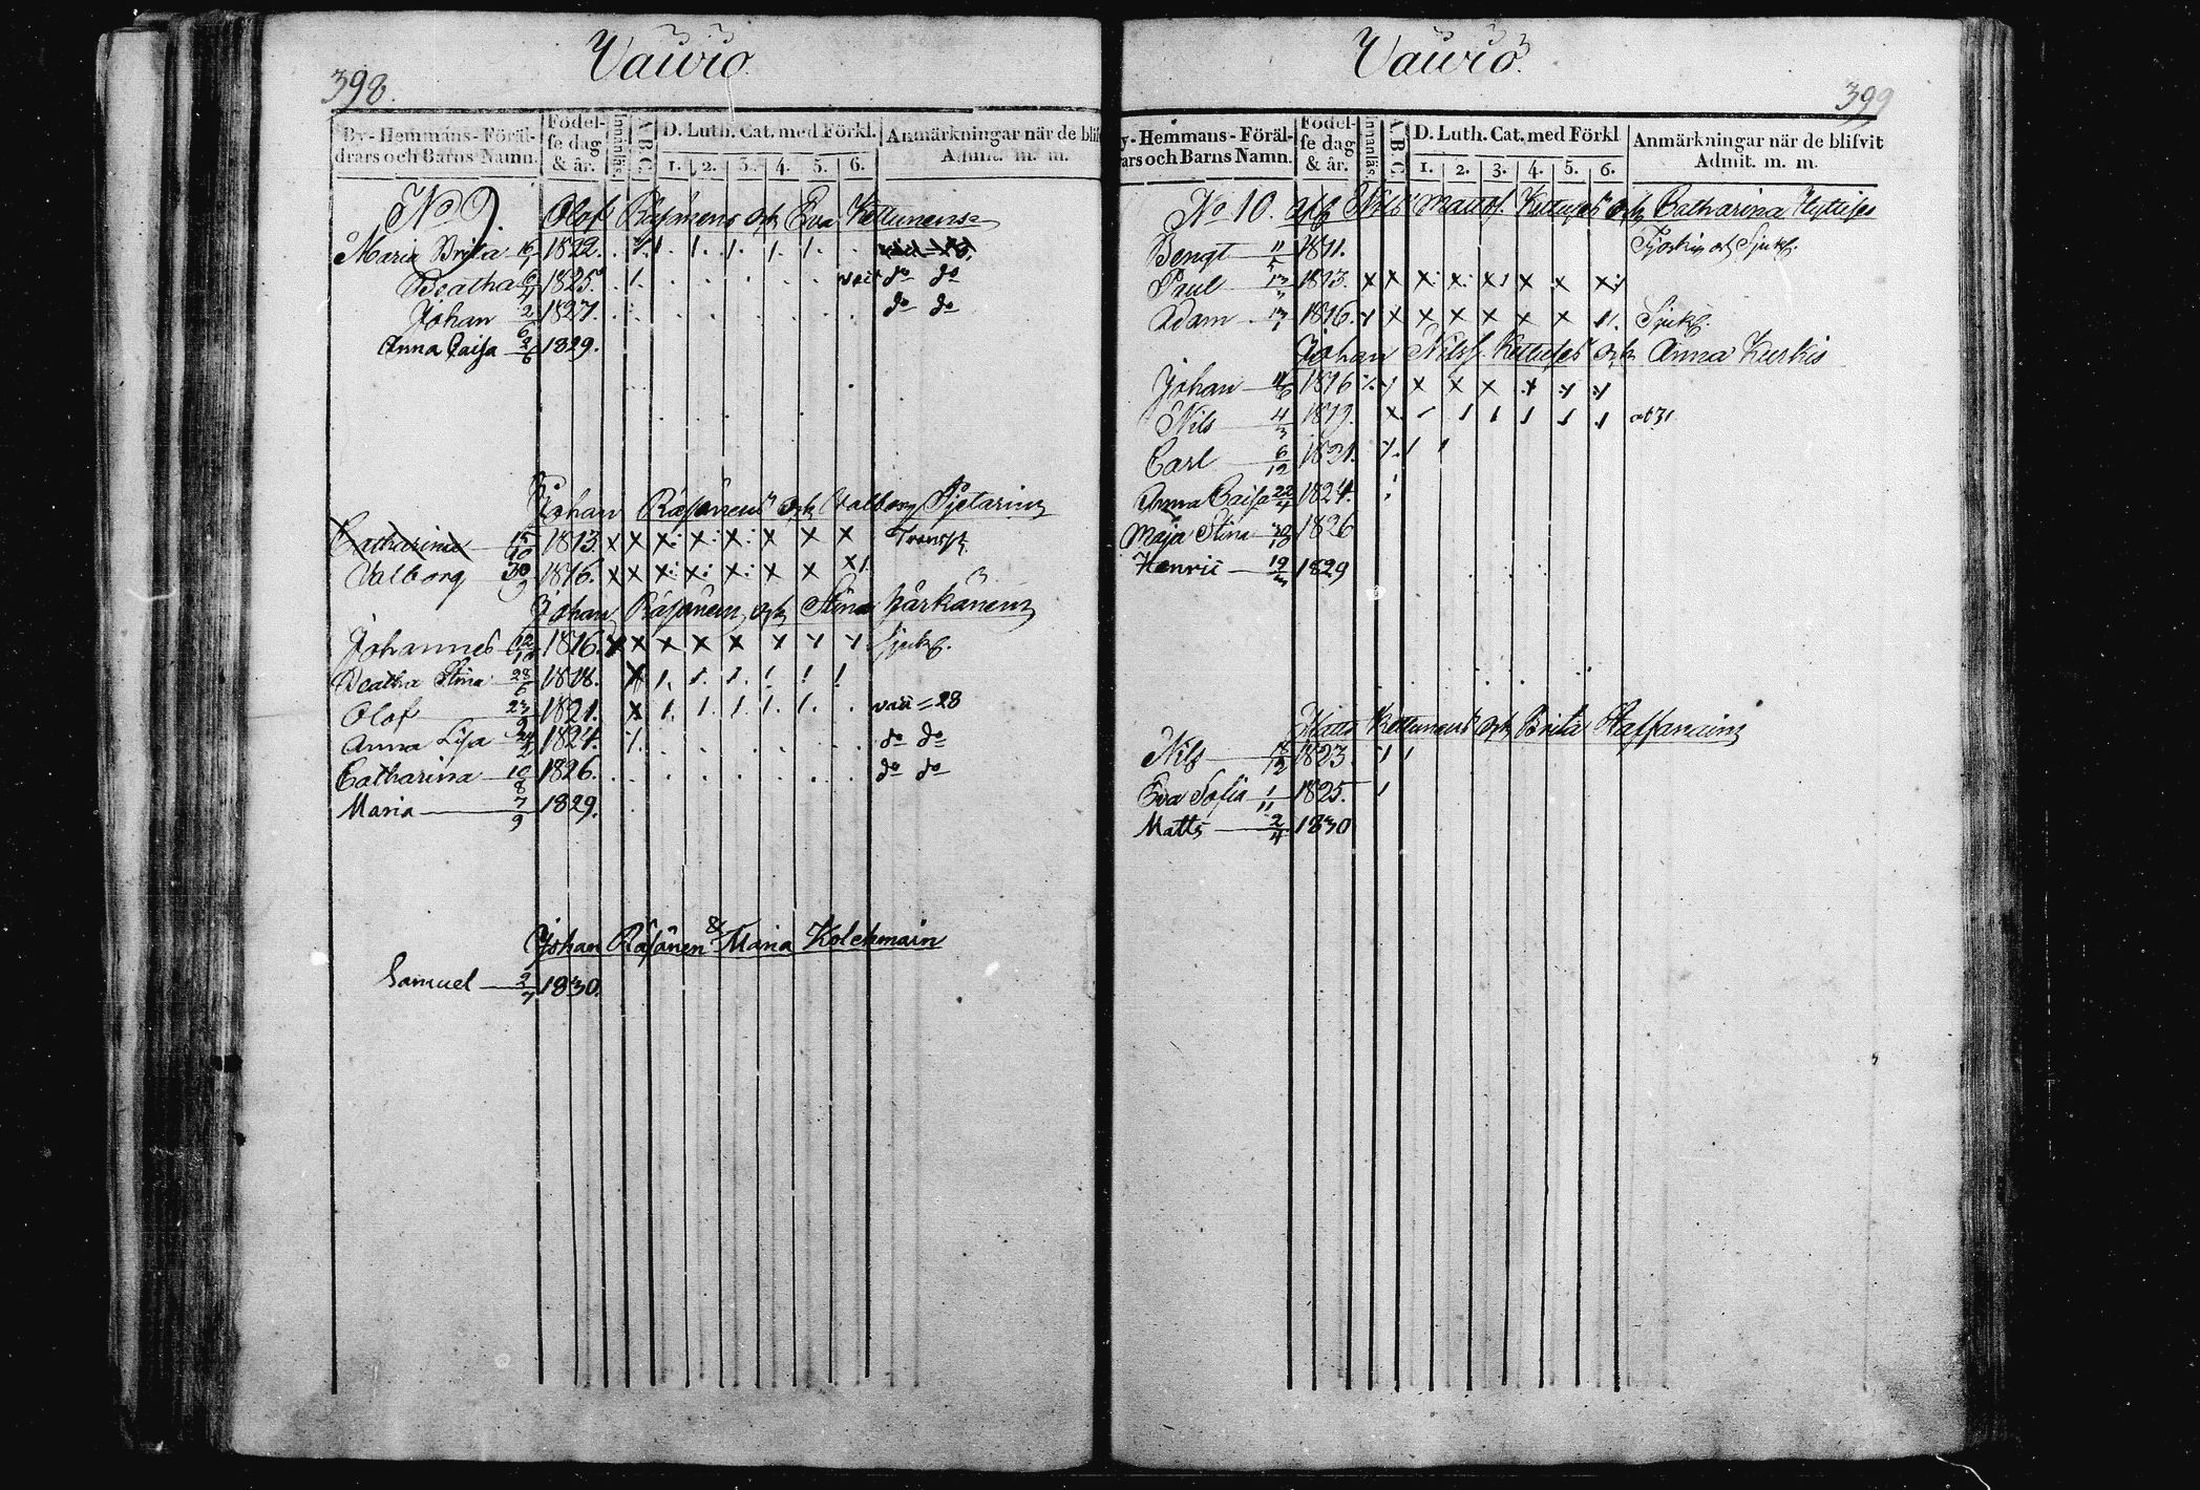 Vaivio
398.
By-Hemmans-Föräl-
drars och Barns Namn.
Födel-
se dag
& år.
Innanläs
A.B.C.
D. Luth. Cat. med Förkl.
1. 2. 3. 4. 5. 6.
Anmärkningar när de blif
Admit. m. m.
No 9. Olof Räsänens och Eva Kettunens
Maria Brita 16/1 1822.
Beatha 6/4 1825. do do
Johan 2/6 1827. do do
Anna Caisa 2/6 1829.
Johan Räsänens och Valborg
Catharina 15/10 1813. x x x: x: x: x x x Transp.
Valborg 30/9 1816. x x x: x: x: x x x1
Johan Räsänen och Stina Härkänens
Johannes 12/10 1816. x x x x x x x x Sjukl.
Beatha Stina 28/6 1818. x 1. 1. 1. 1. 1. 1.
Olof 23/9 1821. x 1. 1. 1. 1. 1. =28
Anna Lisa 24/2 1824. do do
Catharina 10/8 1826. do do
Maria 7/9 1829.
Johan Räsänen & Maria Kolehmain
Samuel 2/7 1830.
Vaivio.
399
y-Hemmans-Föräl-
ars och Barns Namn.
Födel-
se dag
& år.
Innanläs
A.B.C.
D. Luth. Cat. med Förkl
1. 2. 3. 4. 5. 6.
Anmärkningar när de blifvit
Admit. m. m.
No 10. Nils Matts. Kettuses och Catharina Hyttises
Bengt 1811. och Sjukl.
Paul 1813. x x x: x: x1 x x x:
Adam 1816. x x x x x x x 11. Sjukl.
Johan Nilss. Kettuses och Anna Kurkis
Johan 11/6 1816 x x x x x x x
Nils 4/3 1819. x 1 1 1 1 1 1
Carl 6/12 1821. 1 1
Anna Caisa 22/4 1824.
Maja Stina 1826
Henric 19/3 1829
Matts Kettunens och Brita Staffanains
Nils 1823
Eva Sofia 1/11 1825.
Matts 2/4 1830